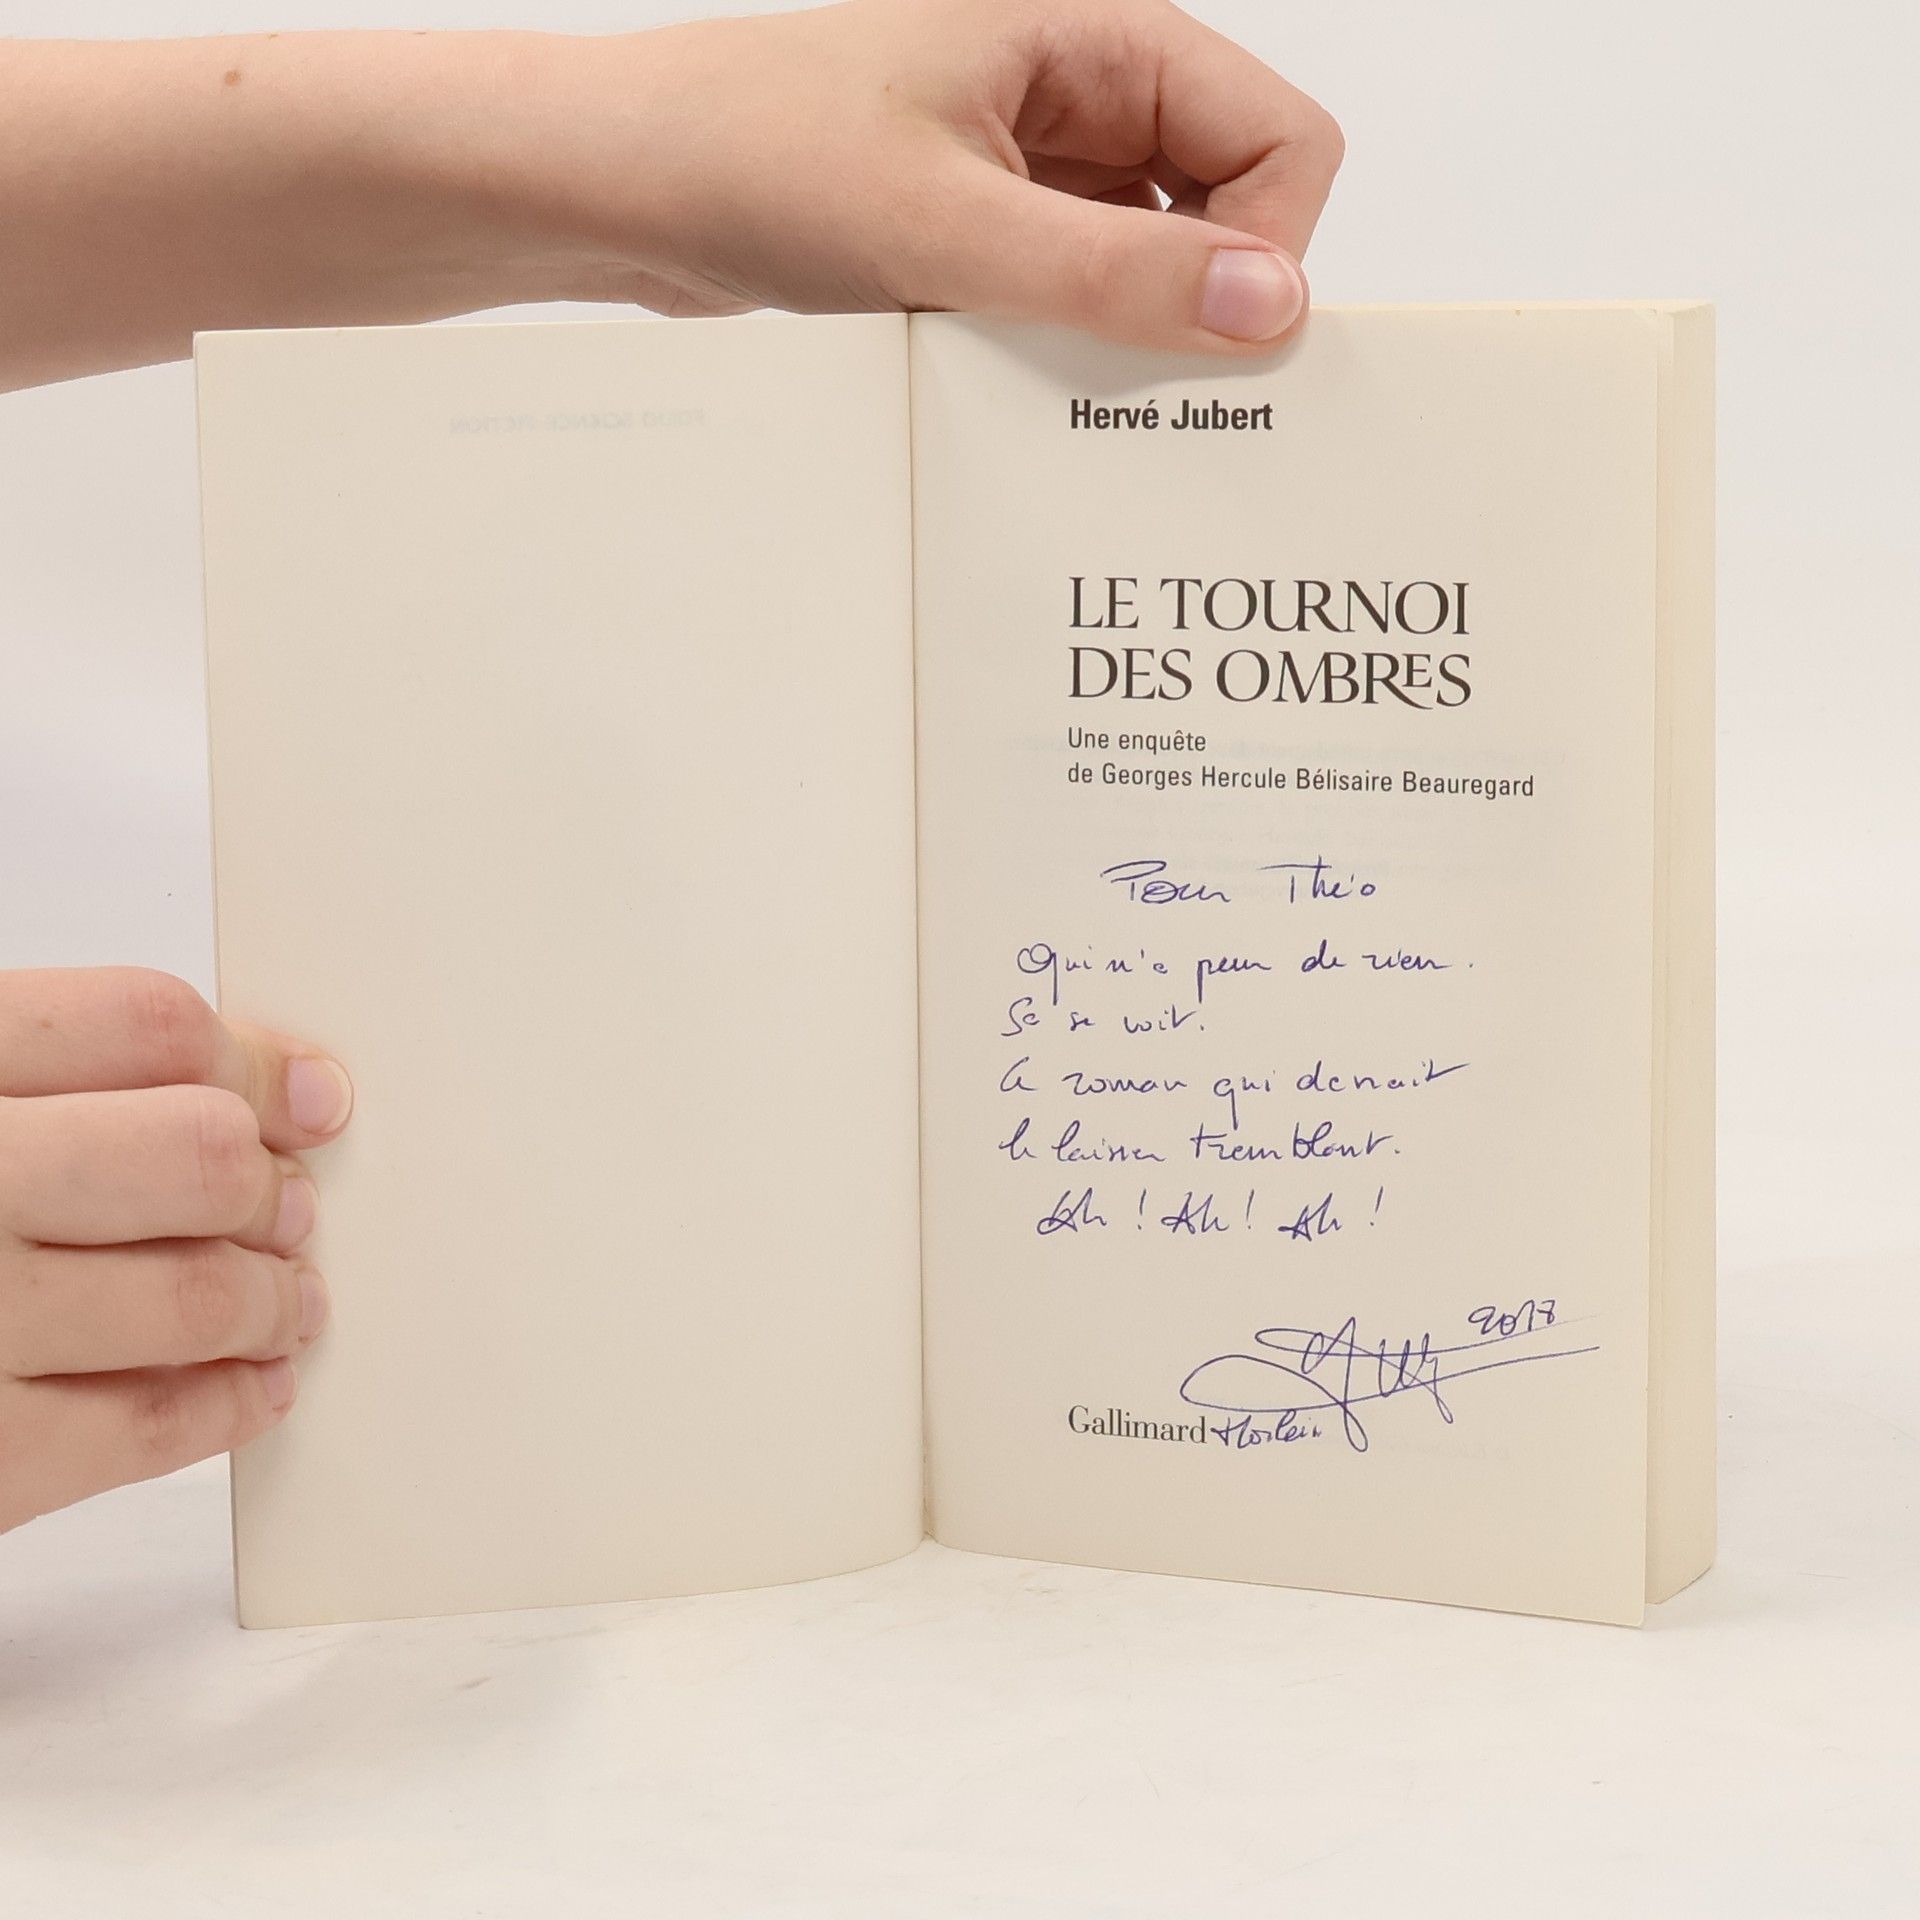 FOLIO SCIENCE-FICTION
Hervé Jubert
LE TOURNOI
DES OMBRES
Une enquête
de Georges Hercule Bélisaire Beauregard
Pour Théo
Qui n'a peur de rien.
Ça se voit.
Ce roman qui devrait
le laisser tremblant.
Ah ! Ah ! Ah !
Gallimard